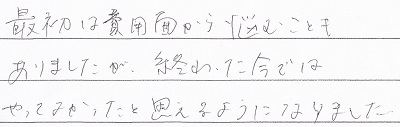 最初は費用面から悩むことも
ありましたが、終わった今では
やってよかったと思えるようになりました